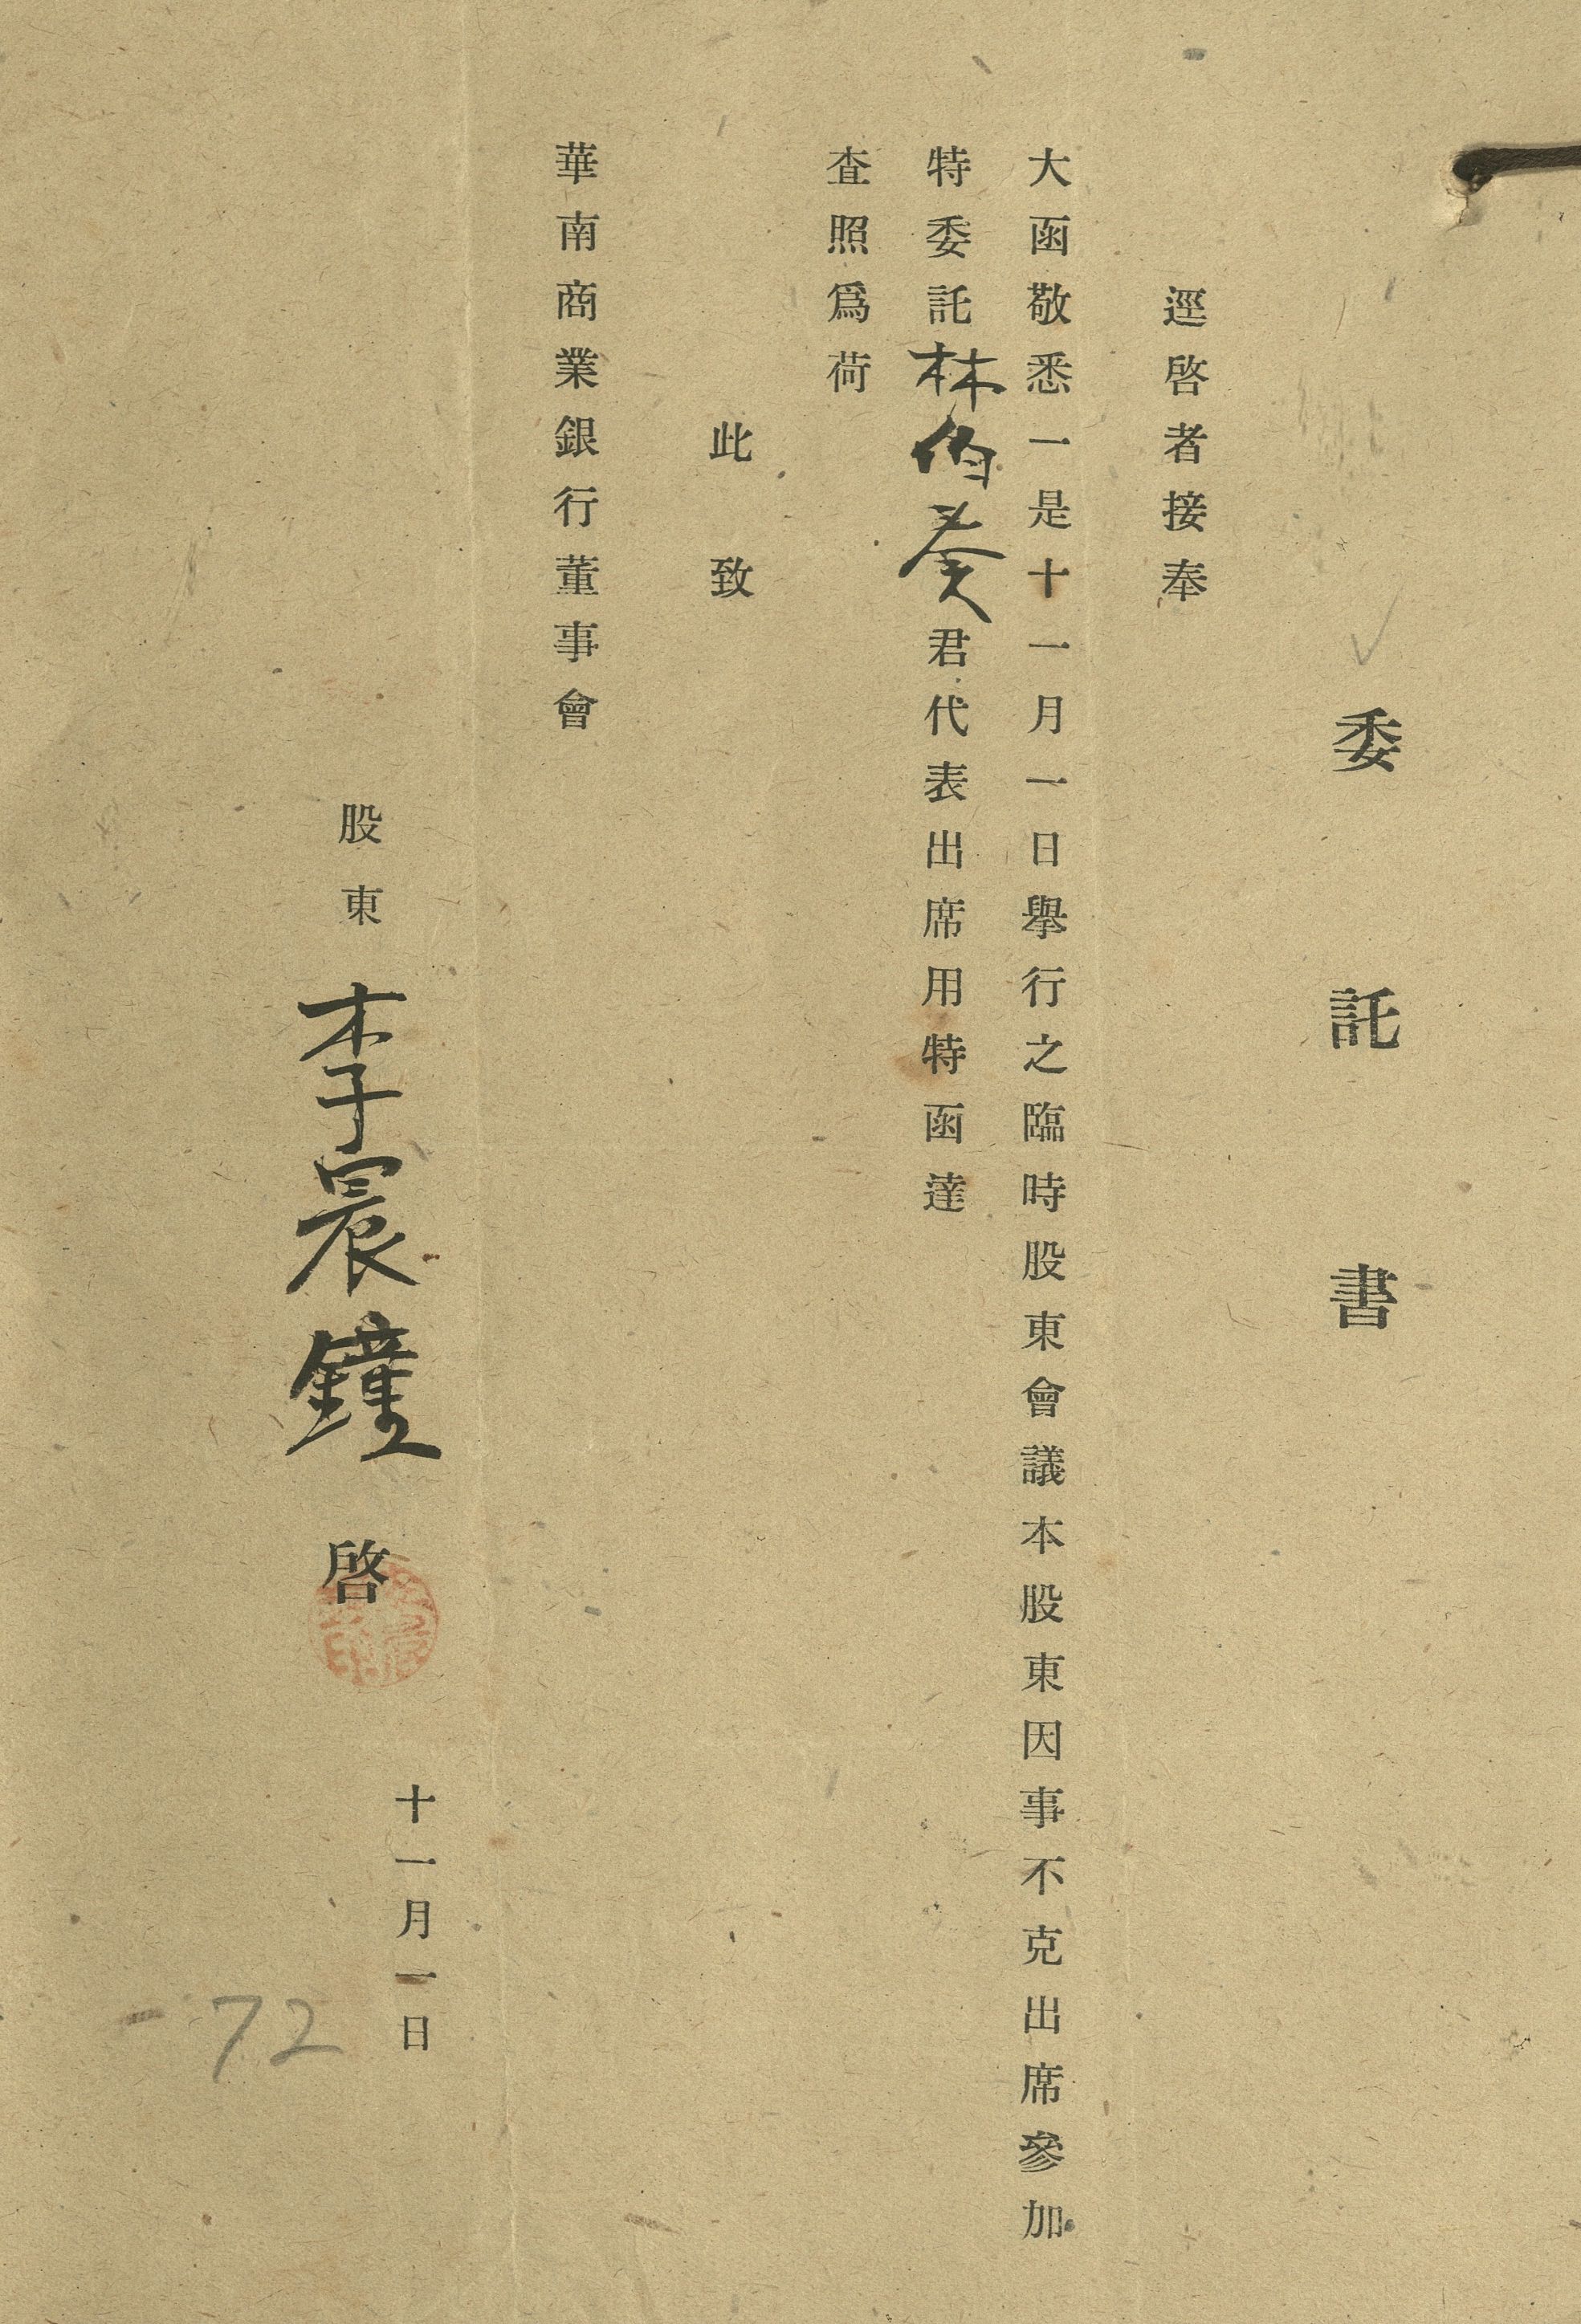 委託書
逕啓者接奉
大函敬悉一是十一月一日擧行之臨時股東會議本股東因事不克出席參加
特委託林伯奏君代表出席用特函達
査照爲荷
此致
華南商業銀行董事會
股東 李晨鐘 啓
十一月一日
72